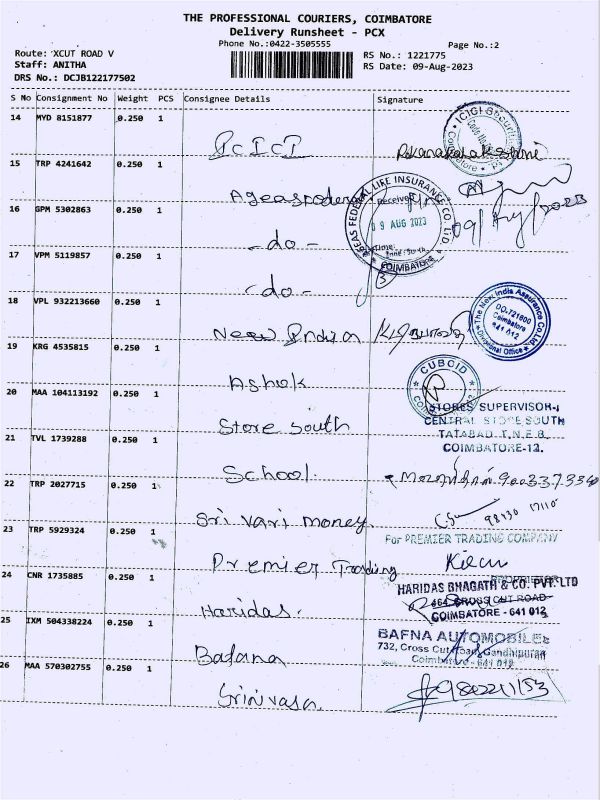 THE PROFESSIONAL COURIERS, COIMBATORE
Delivery Runsheet - PCX
Phone No.:0422-3505555
Page No.:2
Route: XCUT ROAD V
Staff: ANITHA
DRS No.: DCJB122177502
RS No.: 1221775
RS Date: 09-Aug-2023
S No Consignment No Weight PCS Consignee Details Signature
14 MYD 8151877 0.250 1
ICICI Securities
Coimbatore
15 TRP 4241642 0.250 1
AGEAS FEDERAL LIFE INSURANCE CO. LTD
Received
09 AUG 2023
Time:
COIMBATORE
16 GPM 5302863 0.250 1
- do -
17 VPM 5119857 0.250 1
- do -
18 VPL 932213660 0.250 1
New India
The New India Assurance Co. Ltd.
DO-721600
Coimbatore
641 012
Divisional Office
19 KRG 4535815 0.250 1
Ashok
CUBCID
20 MAA 104113192 0.250 1
Store South
STORES SUPERVISOR-I
CENTRAL STORE SOUTH
TATABAD, T.N.E.B.,
COIMBATORE-12.
21 TVL 1739288 0.250 1
School
22 TRP 2027715 0.250 1
Sri Vari Money
98430 17110
23 TRP 5929324 0.250 1
Premier Trading
For PREMIER TRADING COMPANY
24 CNR 1735885 0.250 1
Haridas.
HARIDAS BHAGATH & CO. PVT. LTD
464 CROSS CUT ROAD
COIMBATORE - 641 012
25 IXM 504338224 0.250 1
Bafana
BAFNA AUTOMOBILES
732, Cross Cut Road, Gandhipuram
Coimbatore - 641 012
26 MAA 570302755 0.250 1
Srinivasa